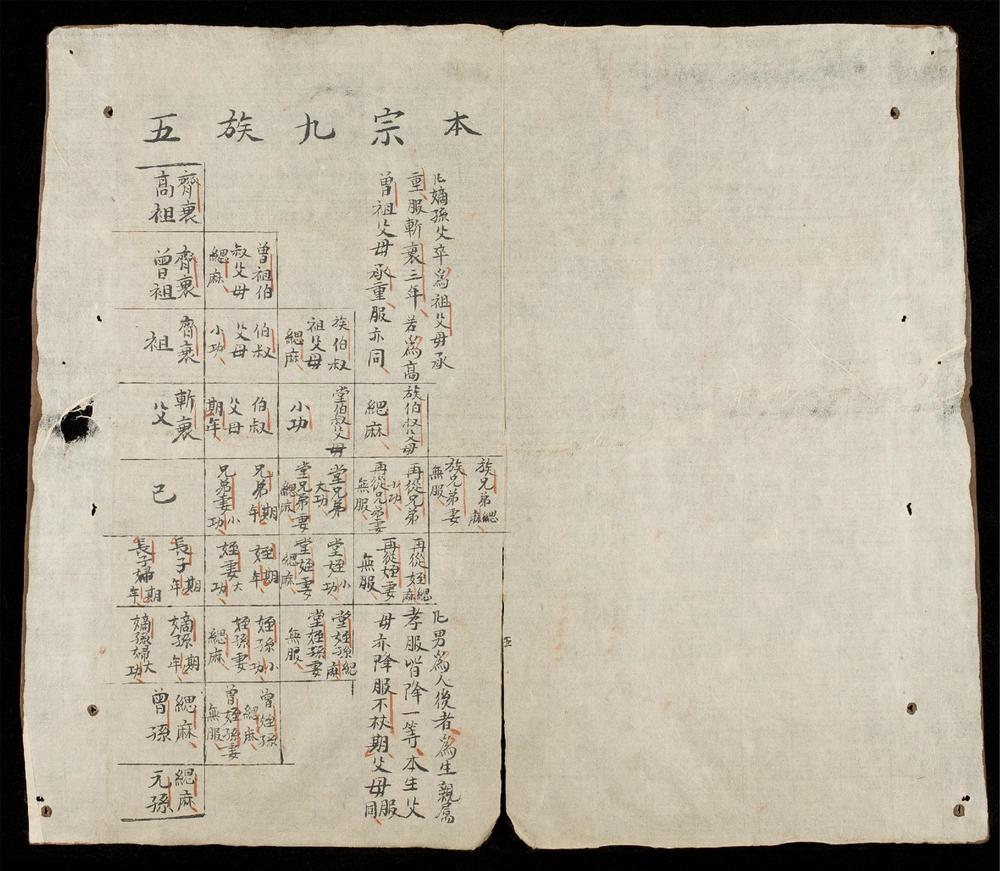 本宗九族五
凡嫡孫父卒為祖父母承
重服斬衰三年若為高
曾祖父母承重服亦同
齊衰
高祖
曾祖伯
叔父母
緦麻
齊衰
曾祖
族伯叔
祖父母
緦麻
伯叔
父母
小功
齊衰
祖
族伯叔父母
緦麻
堂伯叔父母
小功
伯叔
父母
期年
斬衰
父
族兄弟緦麻
族兄弟妻
無服
再從兄弟
小功
再從兄弟妻
無服
堂兄弟
大功
堂兄弟妻
緦麻
兄弟期年
兄弟妻小功
己
再從姪緦麻
再從姪妻
無服
堂姪小功
堂姪妻
緦麻
姪期年
姪妻大功
長子期年
長子婦期年
堂姪孫緦麻
堂姪孫妻
無服
姪孫小功
姪孫妻
緦麻
嫡孫期年
嫡孫婦大功
曾姪孫
緦麻
曾姪孫妻
無服
緦麻
曾孫
緦麻
元孫
凡男為人後者為生親属
孝服皆降一等本生父
母亦降服不杖期父母服同
五